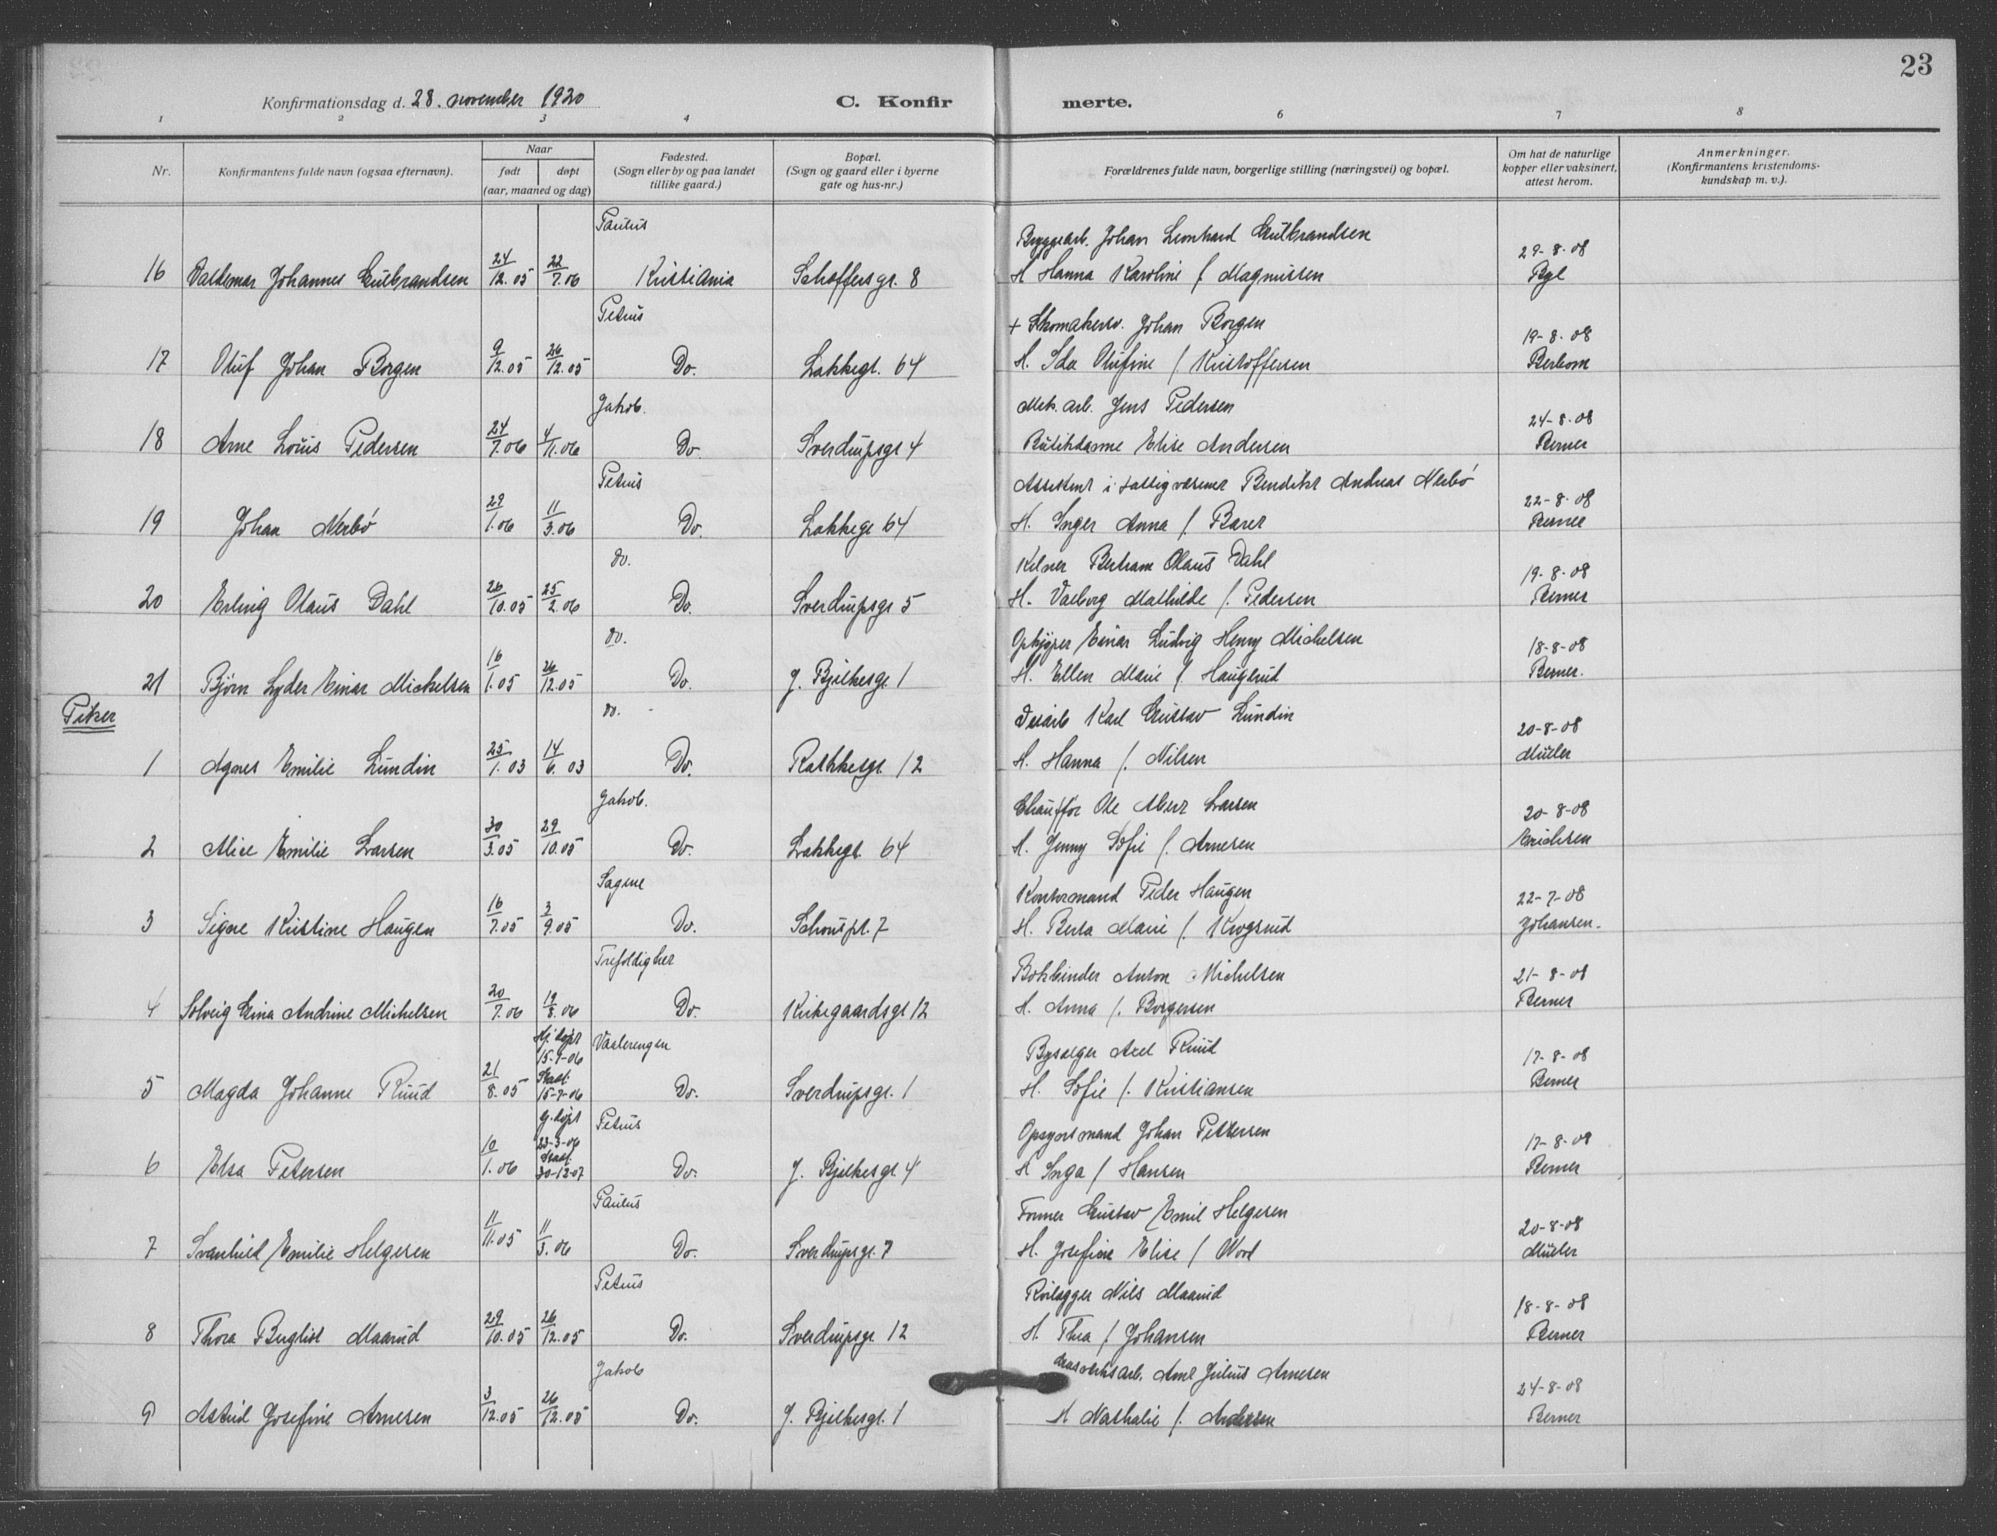 23
Konfirmationsdag d. 28. november 1920
C. Konfir merte.
1 2 3 4 6 7 8
Nr. Konfirmantens fulde navn (ogsaa efternavn). Naar født døpt (aar, maaned og dag) Fødested. (Sogn eller by og paa landet tillike gaard.) Bopæl. (Sogn og gaard eller i byerne gate og hus-nr.) Forældrenes fulde navn, borgerlige stilling (næringsvei) og bopæl. Om hat de naturlige kopper eller vaksinert, attest herom. Anmerkninger. (Konfirmantens kristendoms-kundskap m. v.).
Paulus Bryggearb. Johan Leonhard Gulbrandsen 29-8-08
16 Valdemar Johannes Gulbrandsen 24/12.05 22/7.06 Kristiania Schøffersgt. 8 H. Hanna Karoline f. Magnussen
Petrus + Skomakersv. Johan Borgen 19-8-08
17 Oluf Johan Borgen 9/12.05 26/12.05 Do. Lakkegt. 64 H. Ida Olufine f. Kristoffersen
Jakob. Mek. arb. Jens Pedersen 24-8-08
18 Arne Louis Pedersen 24/7.06 4/11.06 Do. Sverdrupsgt 4 Butikdame Elise Andersen Berner
Petrus Assistent i fattigvæsenet Bendikt Andreas Nerbø 22-8-08
19 Johan Nerbø 29/1.06 11/3.06 Do. Lakkegt 64 H. Inger Anna f. Berner
do. Kelner Bertram Olaus Dahl 19-8-08
20 Erling Olaus Dahl 26/10.05 25/2.06 Do. Sverdrupsgt 5 H. Valborg Mathilde f. Pedersen Berner
do. Einar Ludvig Henry Michelsen 18-8-08
21 Bjørn Lyder Einar Michelsen 16/1.05 26/12.05 Do. J. Bjelkesgt 1 H. Ellen Marie f. Haugerud Berner.
Piker
do. Karl Gustav Lundin 20-8-08
1 Agnes Emilie Lundin 25/1.03 14/6.03 Do. Rathkesgt. 12 H. Hanna f. Nilsen Müller
Jakob. Chauffør Ole Larsen 20-8-08
2 Alice Emilie Larsen 30/3.05 29/10.05 Do. Lakkegt. 64 H. Jenny Sofie f. Arnesen Erichsen
Sagene Kontormand Peder Haugen 22-7-08
3 Signe Kristine Haugen 16/7.05 3/9.05 Do. Schouspl. 7 H. Berta Marie f. Krogsrud Johansen.
Trefoldighet Bokbinder Anton Michelsen 21-8-08
4 Solveig Gina Andrine Michelsen 20/7.06 19/8.06 Do. Kirkegaardsgt 12 H. Anna f. Borgersen Berner
Hj. døpt 15-9-06 Vaalerengen Bysælger Axel Ruud 17-8-08
5 Magda Johanne Ruud 21/8.05 Stadf. Do. Sverdrupsgt. 1 H. Sofie f. Kristiansen Berner
Hj. døpt 23-3-06 Petrus Opsynsmand Johan Pettersen
6 Elsa Petersen 10/1.06 Stadf. 30-12-07 Do. J. Bjelkesgt 4 H. Inga f. Hansen Berner
Paulus Former Gustav Emil Helgesen 20-8-08
7 Svanhild Emilie Helgesen 11/11.05 11/3.06 Do. Sverdrupsgt. 7 H. Josefine Elise f. Müller
Petrus Nils Maarud 18-8-08
8 Thora Maarud 29/10.05 26/12.05 Do. Sverdrupsgt 12 H. Thea f. Johansen Berner
Jakob Arne Julius Arnesen 24-8-08
9 Astrid Josefine Arnesen 3/12.05 26/12.05 Do. J. Bjelkesgt. 1 H. Nathalie f. Andersen Berner